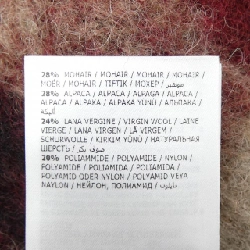 28% MOHAIR / MOHAIR / MOHAIR / MOHAIR /
MOER / MOHAIR / TİFTİK / МОХЕР / موهير
28% ALPACA / ALPACA / ALPAGA / ALPACA /
ALPACA / ALPAKA / ALPAKA YÜNÜ / АЛЬПАКА /
24% LANA VERGINE / VIRGIN WOOL / LAINE
VIERGE / LANA VIRGEN / LÃ VIRGEM /
SCHURWOLLE / KIRKIM YÜNÜ / НАТУРАЛЬНАЯ
ШЕРСТЬ / صوف بكر
20% POLIAMMIDE / POLYAMIDE / NYLON /
POLYAMIDE / POLIAMIDA / POLIAMIDA /
POLYAMID ODER NYLON / POLYAMID VEYA
NAYLON / НЕЙЛОН, ПОЛИАМИД /